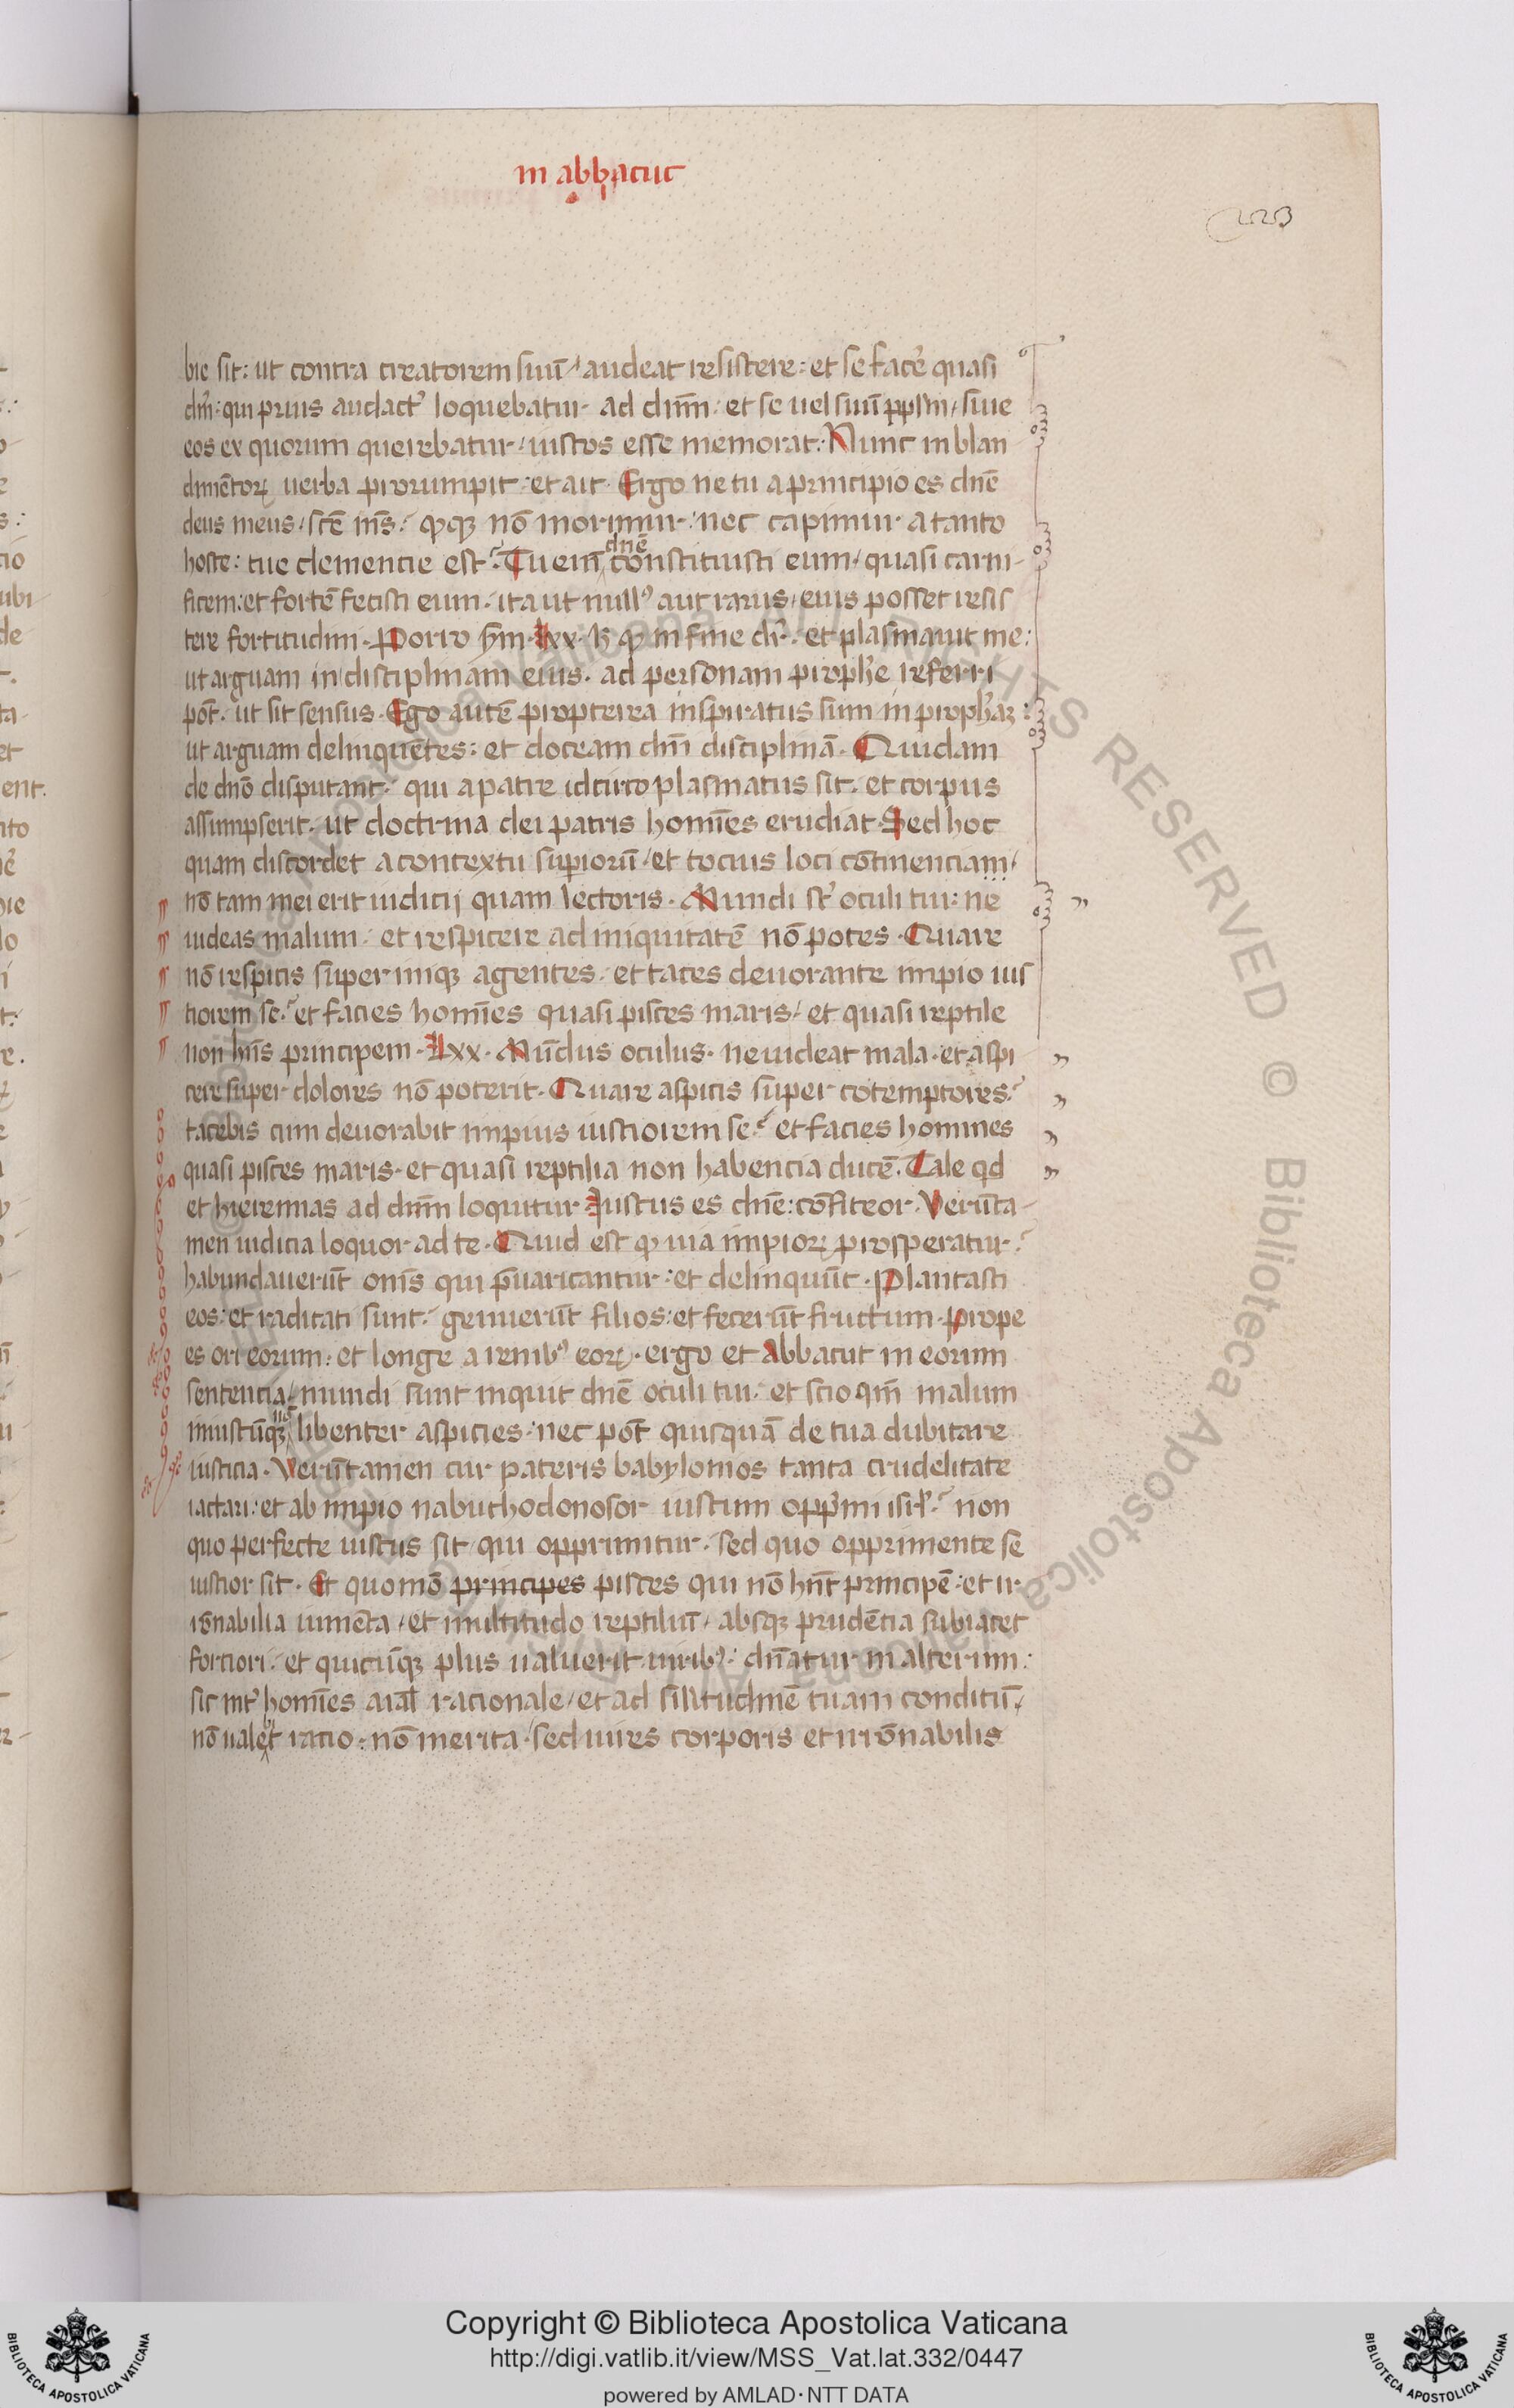 in abbacuc
223
bie sit: ut contra creatorem suū / audeat resistere: et se facẽ quasi
dm̃: qui prius audact᷑ loquebatur ad dn̄m: et se uel suū pp̄lm / siue
eos ex quorum querebatur / iustos esse memorat. Nunc in blan
dimētoꝝ uerba prorumpit: et ait. Ergo ne tu a principio es dn̄e
deus meus / scē m̄s: qꝫ nō morimur: nec capimur a tanto
hoste: tue clementie est? Tu em̄ dn̄e constituisti eum / quasi carni-
ficem: et fortē fecisti eum. ita ut null᷒ aut rarus / eius posset resis
tere fortitudini. Porro iu᷑m lxx. h̄ qꝫ in fine dr̄. et plasmauit me:
ut arguam in disciplinam eius. ad personam prophē referri
pōt. ut sit sensus. Ego autē propterea inspiratus sum in propħaꝫ:
ut arguam delinquētes: et doceam dn̄i disciplinā. Quidam
de dn̄o disputant. qui a patre idcirco plasmatus sit. et corpus
assumpserit. ut doctrina dei patris homīes erudiat. Sed hoc
quam discordet a contextu supiorū / et tocius loci cōtinenciam /
nō tam mei erit iudicij quam lectoris. Mundi st᷑ oculi tui: ne
uideas malum. et respicere ad iniquitatē nō potes. Quare
nō respicis super iniqꝫ agentes. et taces deuorante impio ius
tiorem se? et facies homīes quasi pisces maris / et quasi reptile
non hn̄s principem. Lxx. Mūdus oculus. ne uideat mala. et aspi
cere super dolores nō poterit. Quare aspicis super cōtemptores?
tacebis cum deuorabit impius iustiorem se? et facies homines
quasi pisces maris. et quasi reptilia non habencia ducē. Tale qd
et hieremias ad dn̄m loquitur Iustus es dn̄e: cōfiteor. Verūta-
men iudicia loquor ad te. Quid est qꝫ uia impioꝝ prosperatur?
habundauerūt om̄s qui p̄uaricantur: et delinquūt. Plantasti
eos: et radicati sunt. genuerūt filios: et fecerūt fructum. Prope
es ori eorum: et longe a renib᷒ eoꝝ. ergo et Abbacuc in eorum
sentencia / mundi sunt inquit dn̄e oculi tui: et scio qm̄ malum
iniustūqꝫ nō libenter aspicies. nec pōt quisquā de tua dubitare
iusticia. Verūtamen cur pateris babylonios tanta crudelitate
iactari: et ab impio nabuchodonosor iustum opp̄mi isrl̄? non
quo perfecte iustus sit qui opprimitur. sed quo opprimente se
iustior sit. Et quomō principes pisces qui nō hn̄t principē: et ir-
rōnabilia iumēta / et multitudo reptiliū / absqꝫ prudētia subiacet
fortiori. et quicūqꝫ plus ualuerit uirib᷒: dn̄atur in alterum:
sic int᷑ homīes aīal racionale / et ad sīlitudinē tuam conditū /
nō ualet ratio: nō merita. sed uires corporis et irrōnabilis
Copyright © Biblioteca Apostolica Vaticana
http://digi.vatlib.it/view/MSS_Vat.lat.332/0447
powered by AMLAD·NTT DATA